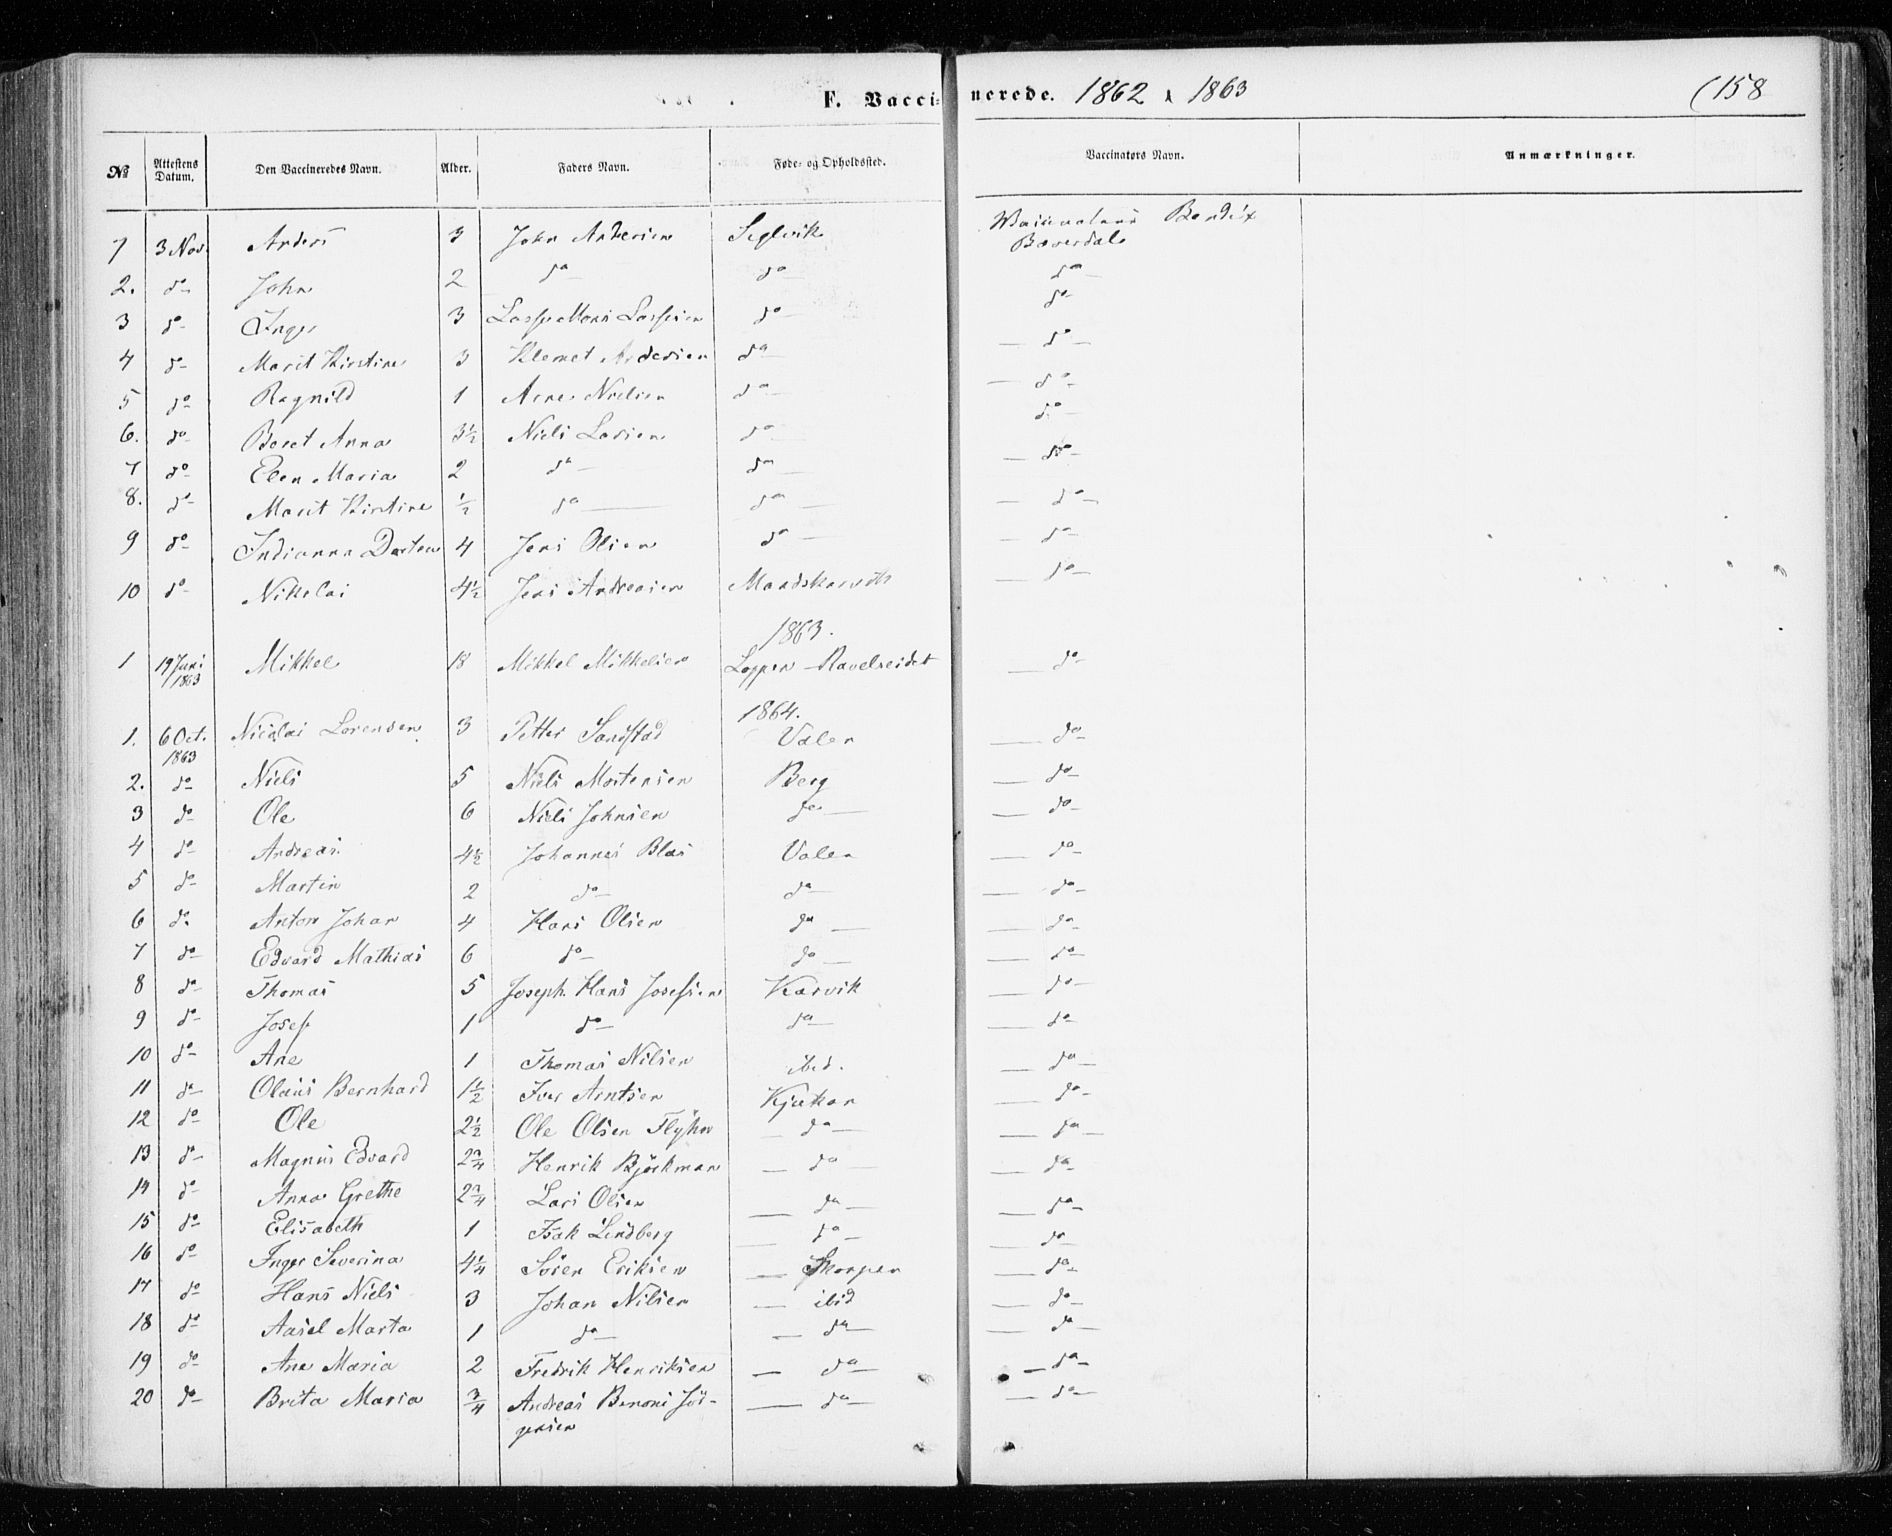 F. Vaccinerede. 1862 & 1863 (158
No Attestens Datum. Den Vaccineredes Navn. Alder. Faders Navn. Føde- og Opholdssted. Vaccinatørs Navn. Anmærkninger.
1 3 Nov. Anders 3 John Andersen Seglvik Bendix
2. do John 2 do do do
3 do Inger 3 Mons do do
4 do Marit Kirstine 3 Klemet Andersen do do
5 do Ragnild 1 Nielsen do do
6. do Beret Anna 3½ Niels Larsen do do
7 do Elen Maria 2 do do do
8. do Marit Kirstine ½ do do do
9 do Indianna 4 Jens Olsen do do
10 do Nikolai 4½ Jens Andreasen do
1863.
1 19 Juni 1863 Mikkel 18 Mikkel Mikkelsen Loppen do
1864.
1. 6 Oct. 1863 Nicolai Lorensen 3 Petter Sandstad Valen do
2. do Niels 5 Niels Mortensen Berg do
3 do Ole 6 Niels Johnsen do do
4 do Andreas 4½ Johannes Blas Valen do
5 do Martin 2 do do do
6 do Anton Johan 4 Hans Olsen do do
7 do Edvard Mathias 6 do do do
8 do Thomas 5 Joseph Hans Josefsen Karvik do
9 do Josef 1 do do do
10 do Ane 1 Thomas Nilsen ibid. do
11 do Olaus Bernhard 1½ Iver Arntsen Kjækan do
12 do Ole 2½ Ole Olsen do do
13 do Magnus Edvard 2¾ Henrik Björkman do do
14 do Anna Grethe 2¾ Lars Olsen do do
15 do Elisabeth 1 Isak Lindberg do do
16 do Inger Severina 4¼ Sören Eriksen Skorpen do
17 do Hans Niels 3 Johan Nilsen ibid do
18 do Aasel Marta 1 do do do
19 do Ane Maria 2 Fredrik Henriksen do do
20 do Brita Maria ¾ Andreas Benoni Jör- do do
gensen